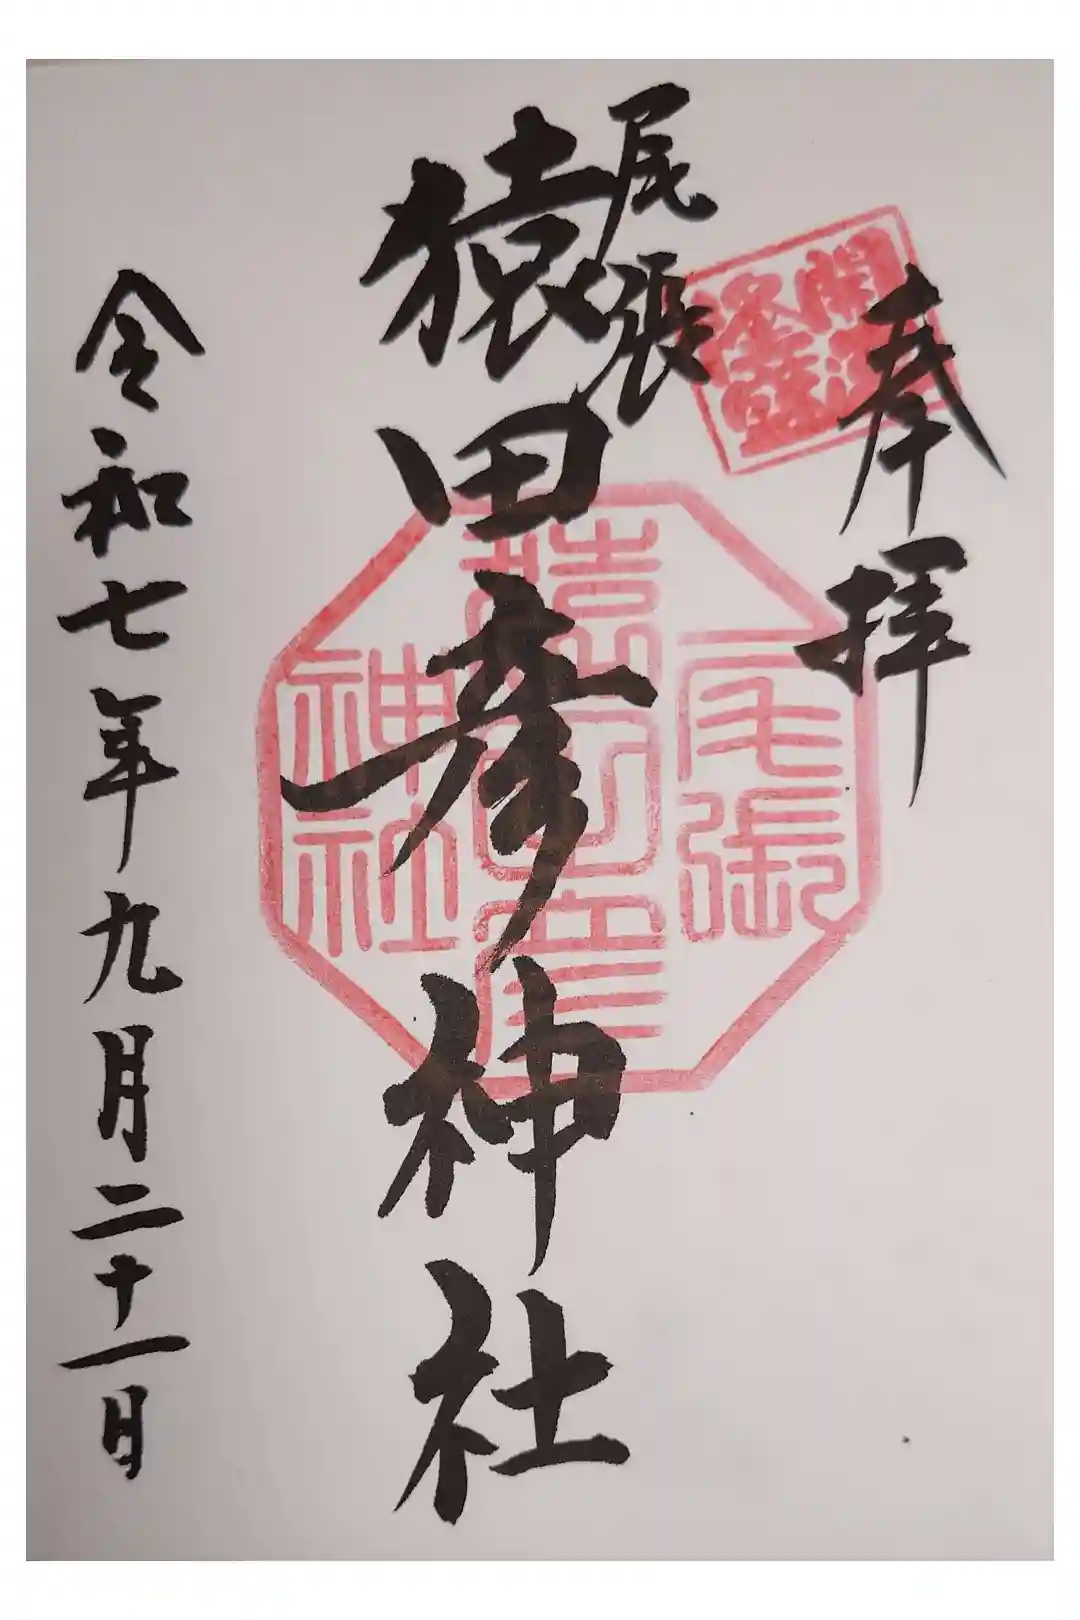 奉拝
開運
隆盛
尾張
猿田彦神社
尾張
猿田彦
神社
令和七年九月二十一日